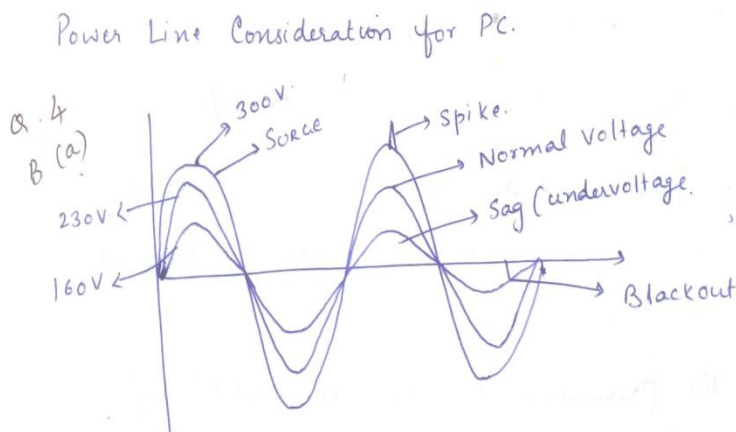 Power Line Consideration for PC.
Q.4
B (a)
300V.
SURGE
230V.
160V
Spike.
Normal Voltage
Sag (undervoltage.
Blackout